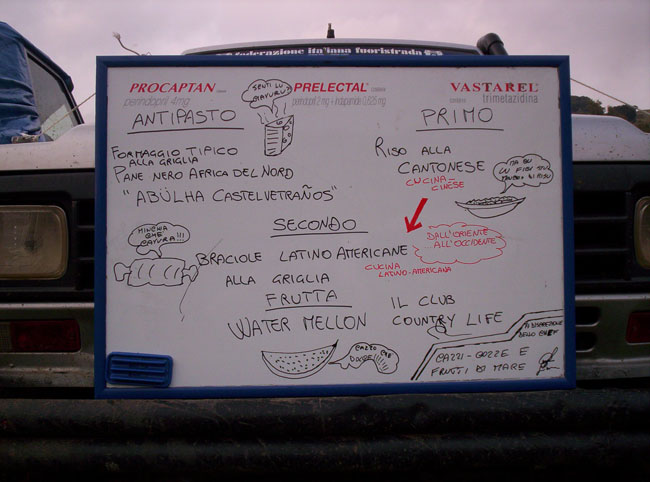 federazione italiana fuoristrada
PROCAPTAN
perindopril 4mg
PRELECTAL
perindopril 2 mg + indapamide 0,625 mg
VASTAREL
trimetazidina
SENTI LU
ANTIPASTO
PRIMO
FORMAGGIO TIPICO
ALLA GRIGLIA
PANE NERO AFRICA DEL NORD
"ABÜLHA CASTELVETRAÑOS"
RISO ALLA
CANTONESE
CUCINA
CINESE
MA SU
SECONDO
MINCHIA
CHE
CAVURA!!!
BRACIOLE LATINO AMERICANE
ALLA GRIGLIA
CUCINA
LATINO-AMERICANA
DALL'ORIENTE
ALL'OCCIDENTE
FRUTTA
WATER MELLON
CAZZO CHE
DOLCE!
IL CLUB
COUNTRY LIFE
A DISCREZIONE
DELLO CHEF
CAZZI-COZZE E
FRUTTI DI MARE